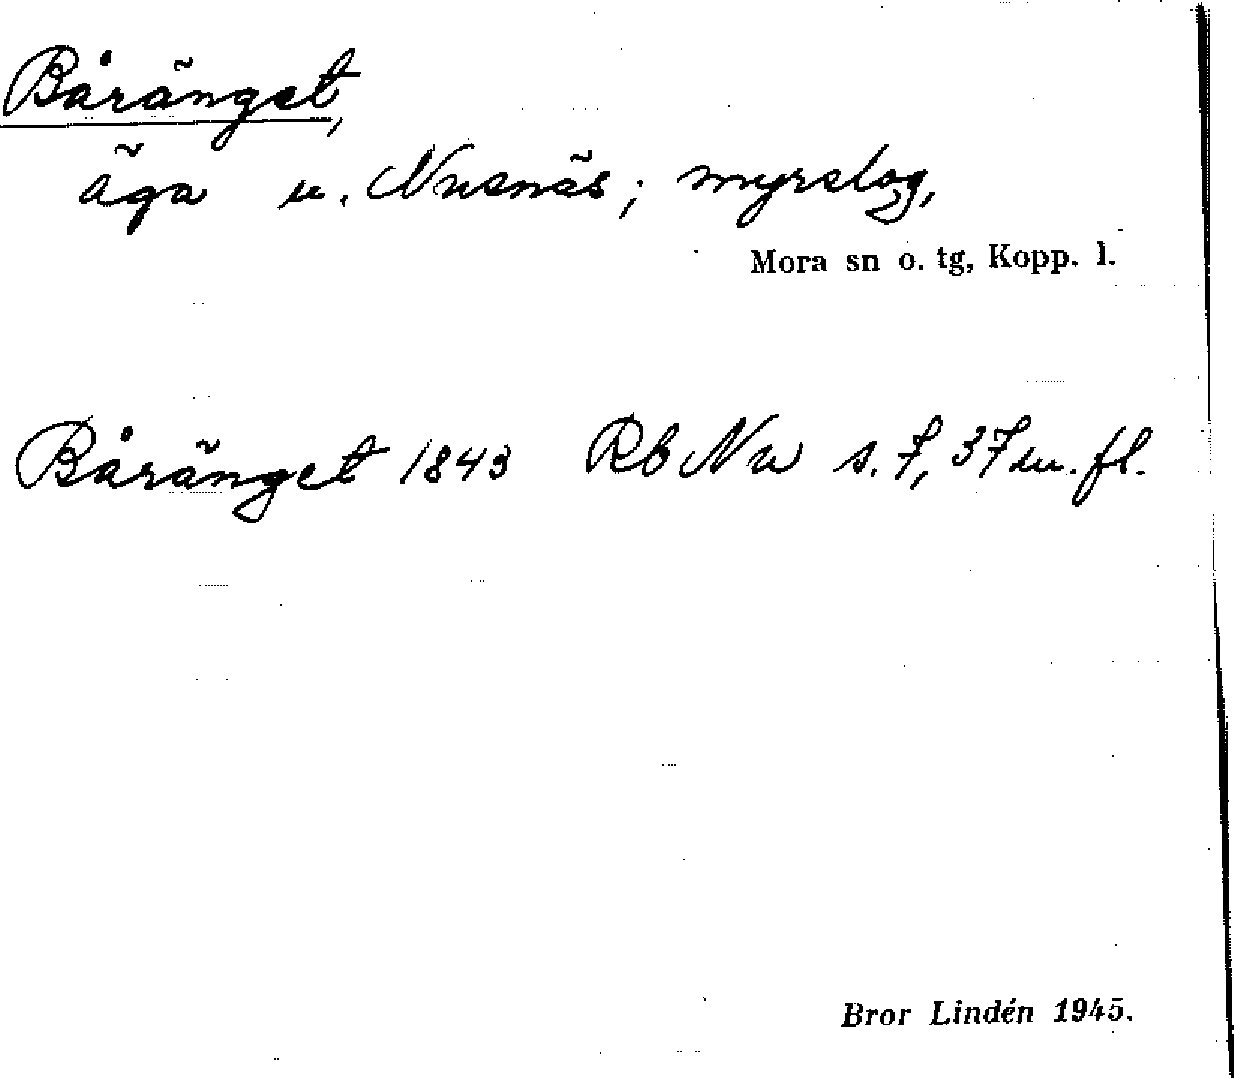 Båränget,
äga u. Nusnäs; myrslog,
Mora sn o. tg, Kopp. l.
Båränget 1843 Rb Nu s. 7, 37 m. fl.
Bror Lindén 1945.